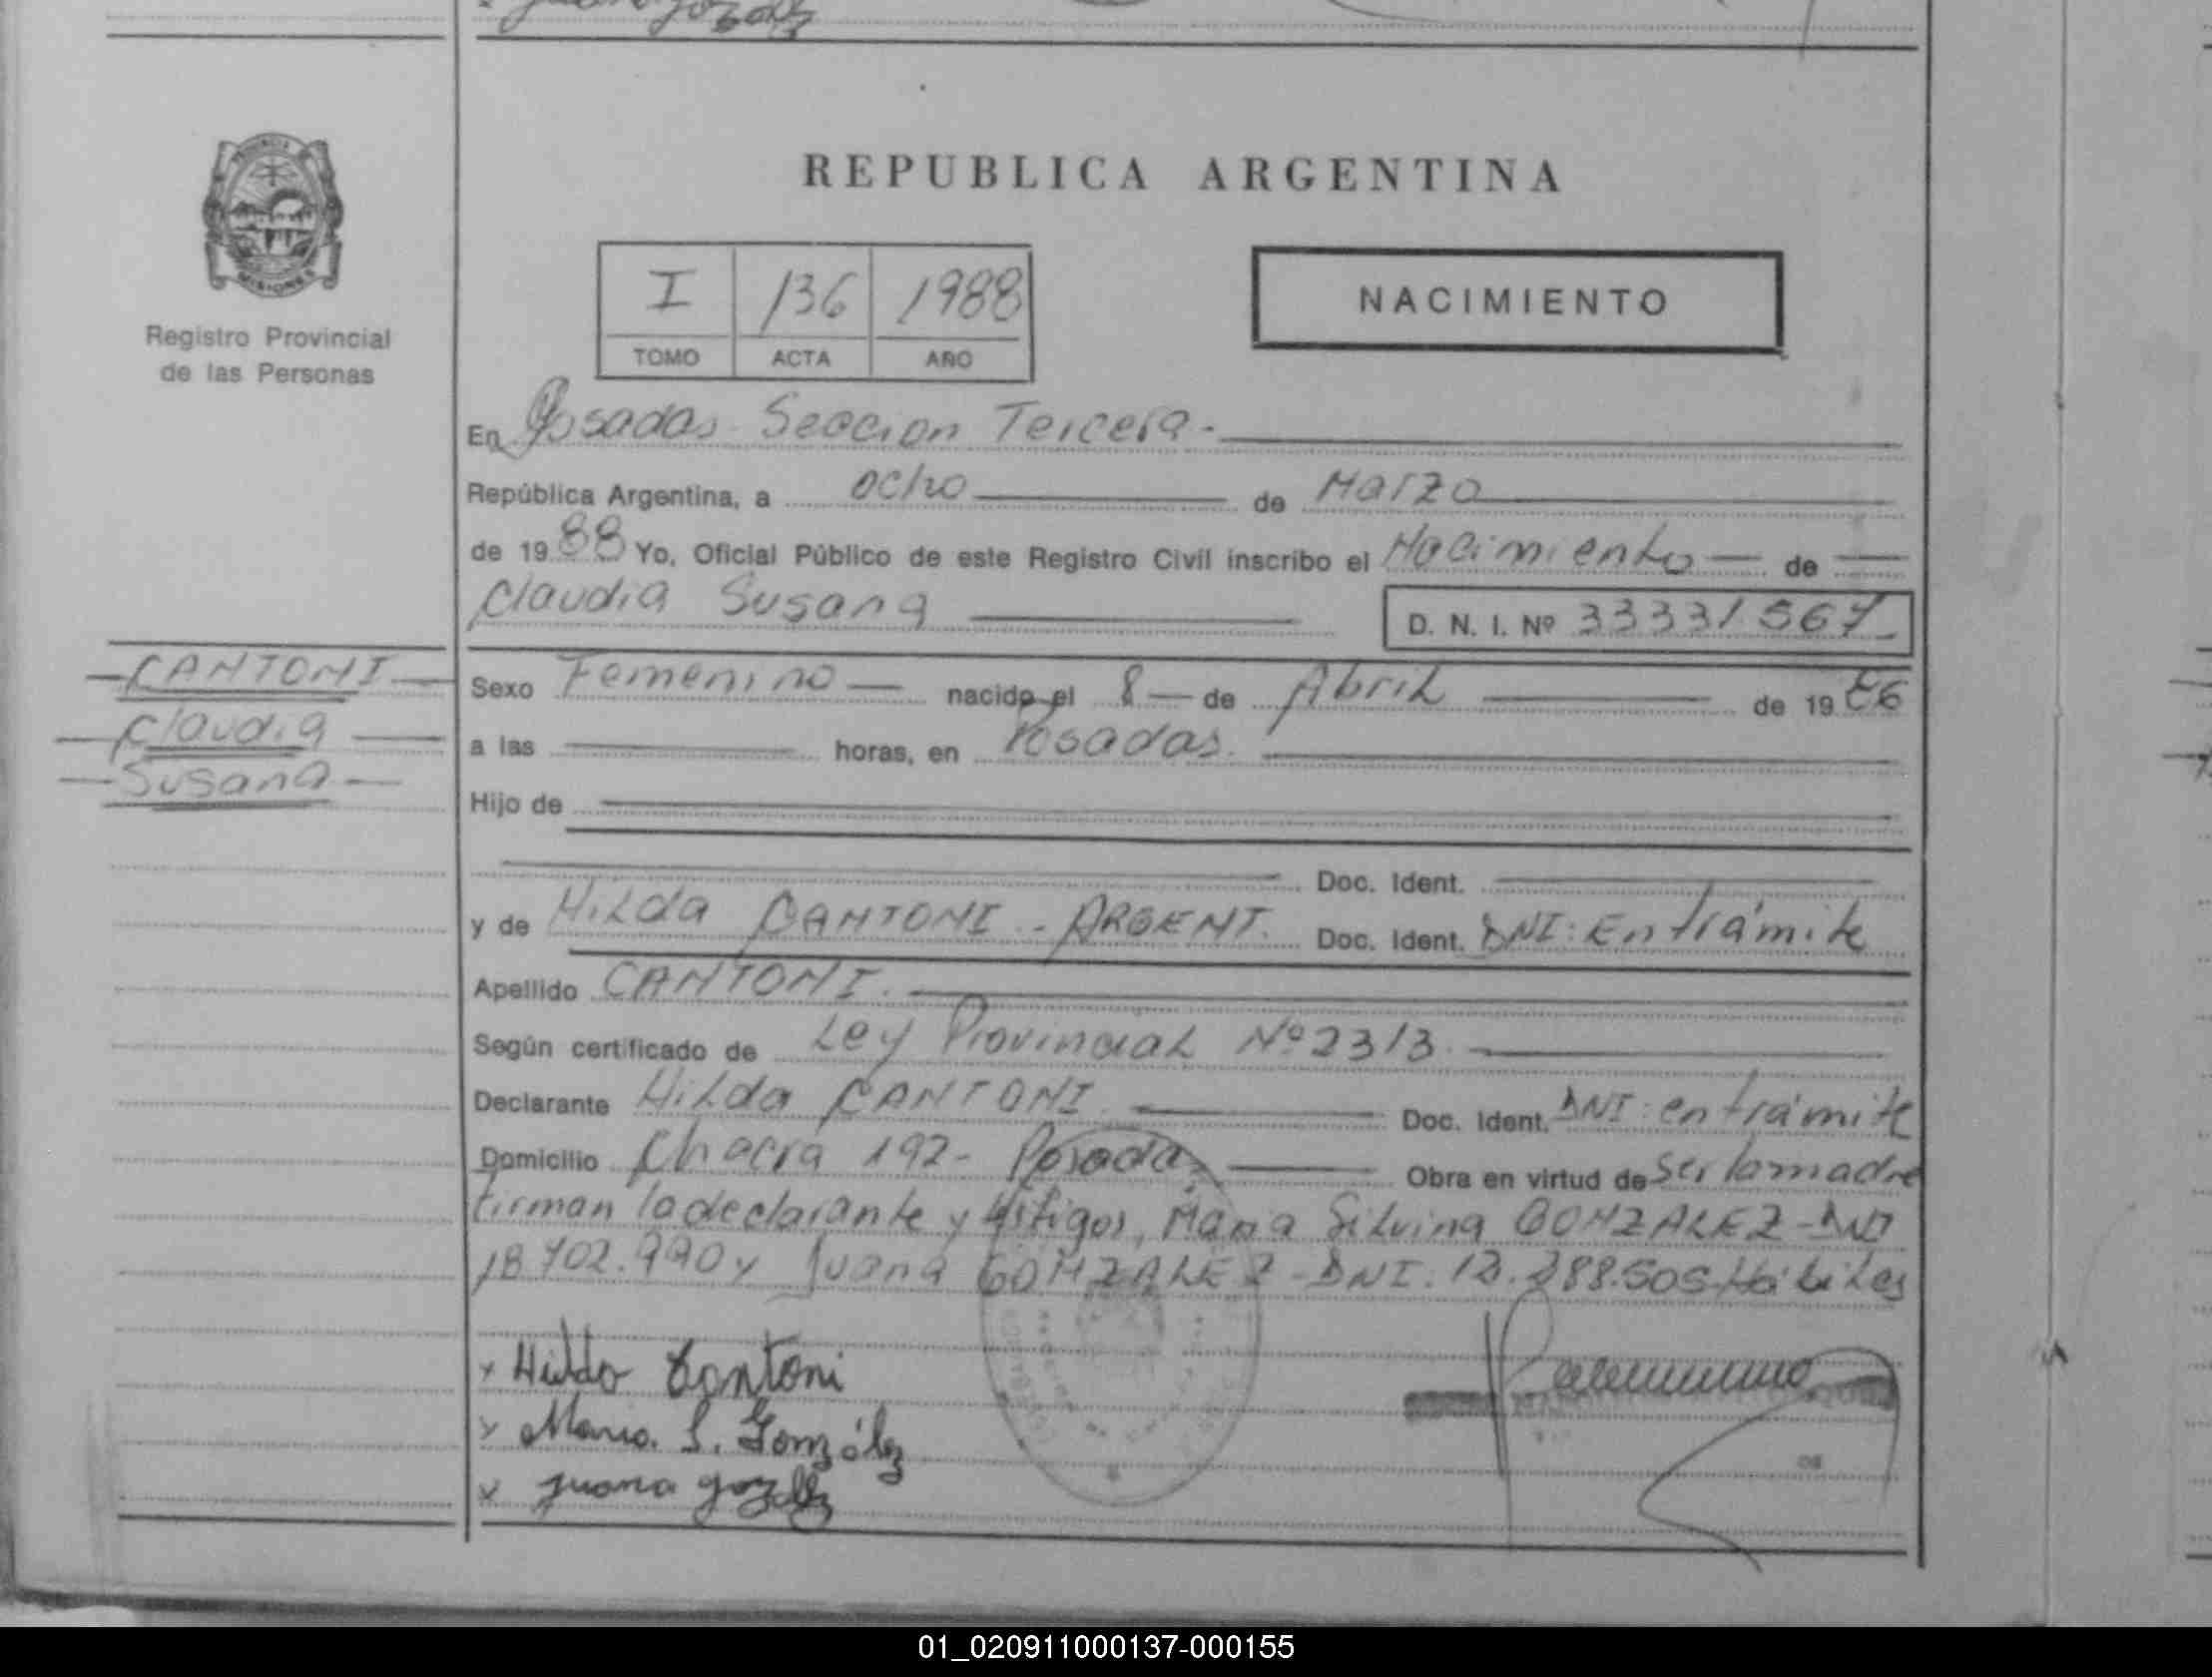 REPUBLICA ARGENTINA
PROVINCIA DE
MISIONES
Registro Provincial
de las Personas
I 136 1988
TOMO ACTA AÑO
NACIMIENTO
En Posadas Seccion Tercera.-
República Argentina, a ocho de Marzo
de 1988 Yo, Oficial Público de este Registro Civil inscribo el Nacimiento de
Claudia Susana D. N. I. Nº 33331567
CANTONI
Claudia
Susana
Sexo Femenino nacido el 8 de Abril de 1986
a las horas, en Posadas.
Hijo de
Doc. Ident.
y de Hilda CANTONI - ARGENT. Doc. Ident. DNI: En trámite
Apellido CANTONI.
Según certificado de Ley Provincial Nº 2313.
Declarante Hilda CANTONI Doc. Ident. DNI: en trámite
Domicilio Chacra 192- Posadas Obra en virtud de ser la madre
firman la declarante y testigos, Maria Silvina GONZALEZ - DNI
18.702.990 y Juana GONZALEZ - DNI: 12.288.505 Hábiles
x Hilda Cantoni
x Maria. S. González
x Juana
01_020911000137-000155